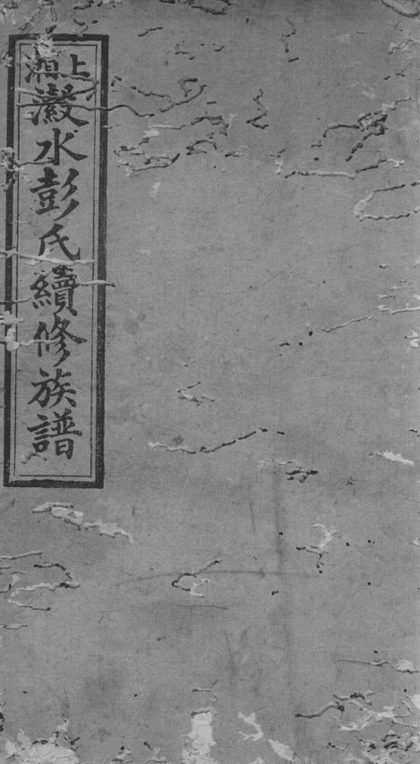 上湘
澂水彭氏續修族譜